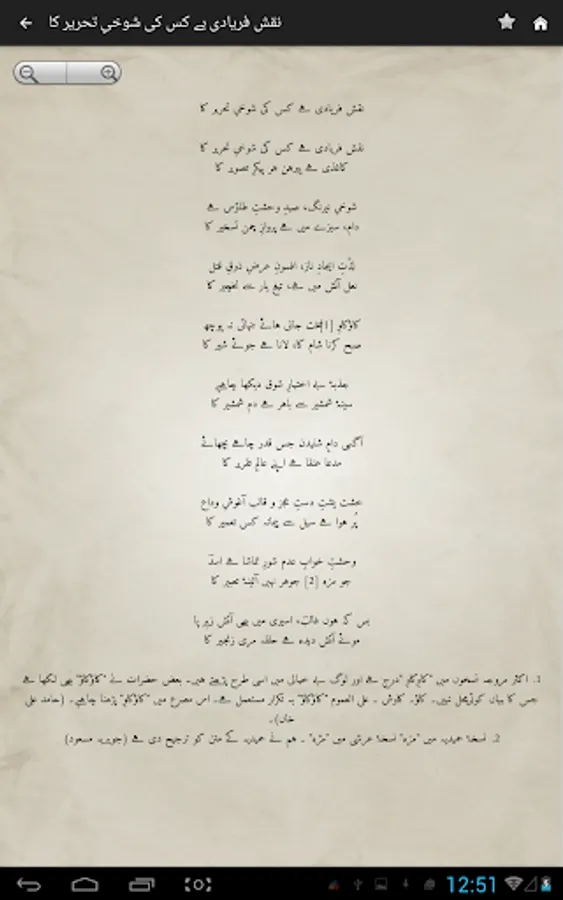 نقش فریادی ہے کس کی شوخیِ تحریر کا
نقش فریادی ہے کس کی شوخیِ تحریر کا
نقش فریادی ہے کس کی شوخیِ تحریر کا
کاغذی ہے پیرہن ہر پیکرِ تصویر کا
شوخیِ نیرنگ، صیدِ وحشتِ طاؤس ہے
دام، سبزے میں ہے پروازِ چمن تسخیر کا
لذّتِ ایجادِ ناز، افسونِ عرضِ ذوقِ قتل
نعل آتش میں ہے، تیغِ یار سے نخچیر کا
کاؤکاوِ [1] سخت جانی ہائے تنہائی نہ پوچھ
صبح کرنا شام کا، لانا ہے جوئے شیر کا
جذبۂ بے اختیارِ شوق دیکھا چاہیے
سینۂ شمشیر سے باہر ہے دم شمشیر کا
آگہی دامِ شنیدن جس قدر چاہے بچھائے
مدعا عنقا ہے اپنے عالمِ تقریر کا
خشت پشتِ دستِ عجز و قالب آغوشِ وداع
پُر ہوا ہے سیل سے پیمانہ کس تعمیر کا
وحشتِ خوابِ عدم شورِ تماشا ہے اسدؔ
جو مزہ [2] جوہر نہیں آئینۂ تعبیر کا
بس کہ ہوں غالبؔ، اسیری میں بھی آتش زیرِ پا
موئے آتش دیدہ ہے حلقہ مری زنجیر کا
1. اکثر مروجہ نسخوں میں "کاوکاوِ" درج ہے اور لوگ بے خیالی میں اسی طرح پڑھتے ہیں۔ بعض حضرات نے "کاؤکاؤ" بھی لکھا ہے
جس کا یہاں کوئی محل نہیں۔ کاؤ۔ کاوش ۔ علی العموم "کاؤکاؤ" بہ تکرار مستعمل ہے۔ اس مصرع میں "کاؤکاوِ" پڑھنا چاہیے۔ (حامد علی
خاں)۔
2. نسخۂ حمیدیہ میں "مزہ" نسخۂ عرشی میں "مژہ" ۔ ہم نے حمیدیہ کے متن کو ترجیح دی ہے (جویریہ مسعود)
12:51